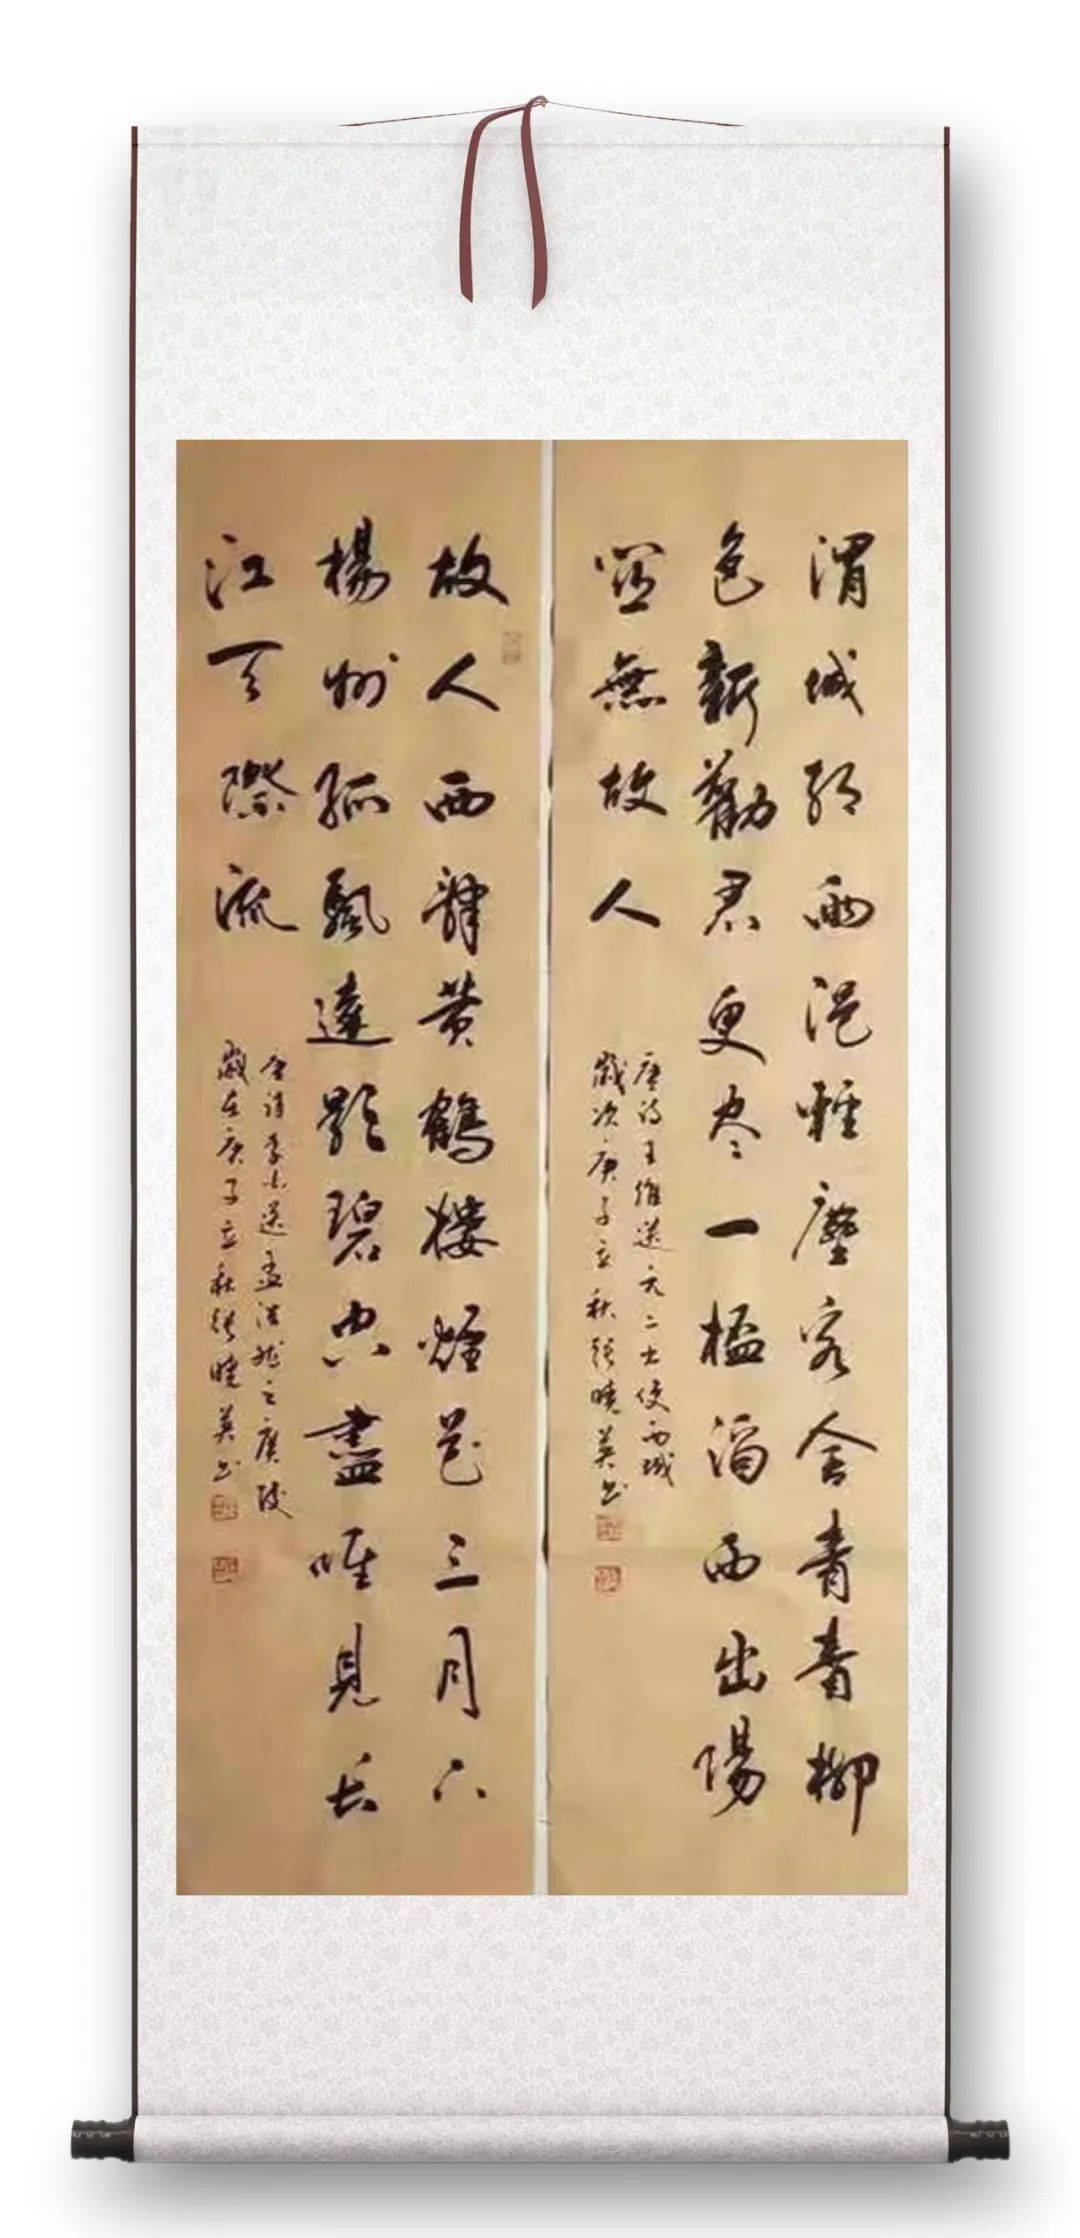 渭城朝雨浥輕塵客舍青青柳
色新勸君更尽一杯酒西出陽
關無故人
唐诗王維送元二出使西域
歲次庚子立秋張曉英书
故人西辭黄鶴樓煙花三月下
楊州孤帆遠影碧空盡唯見长
江天際流
唐诗李白送孟浩然之廣陵
歲在庚子立秋張曉英书